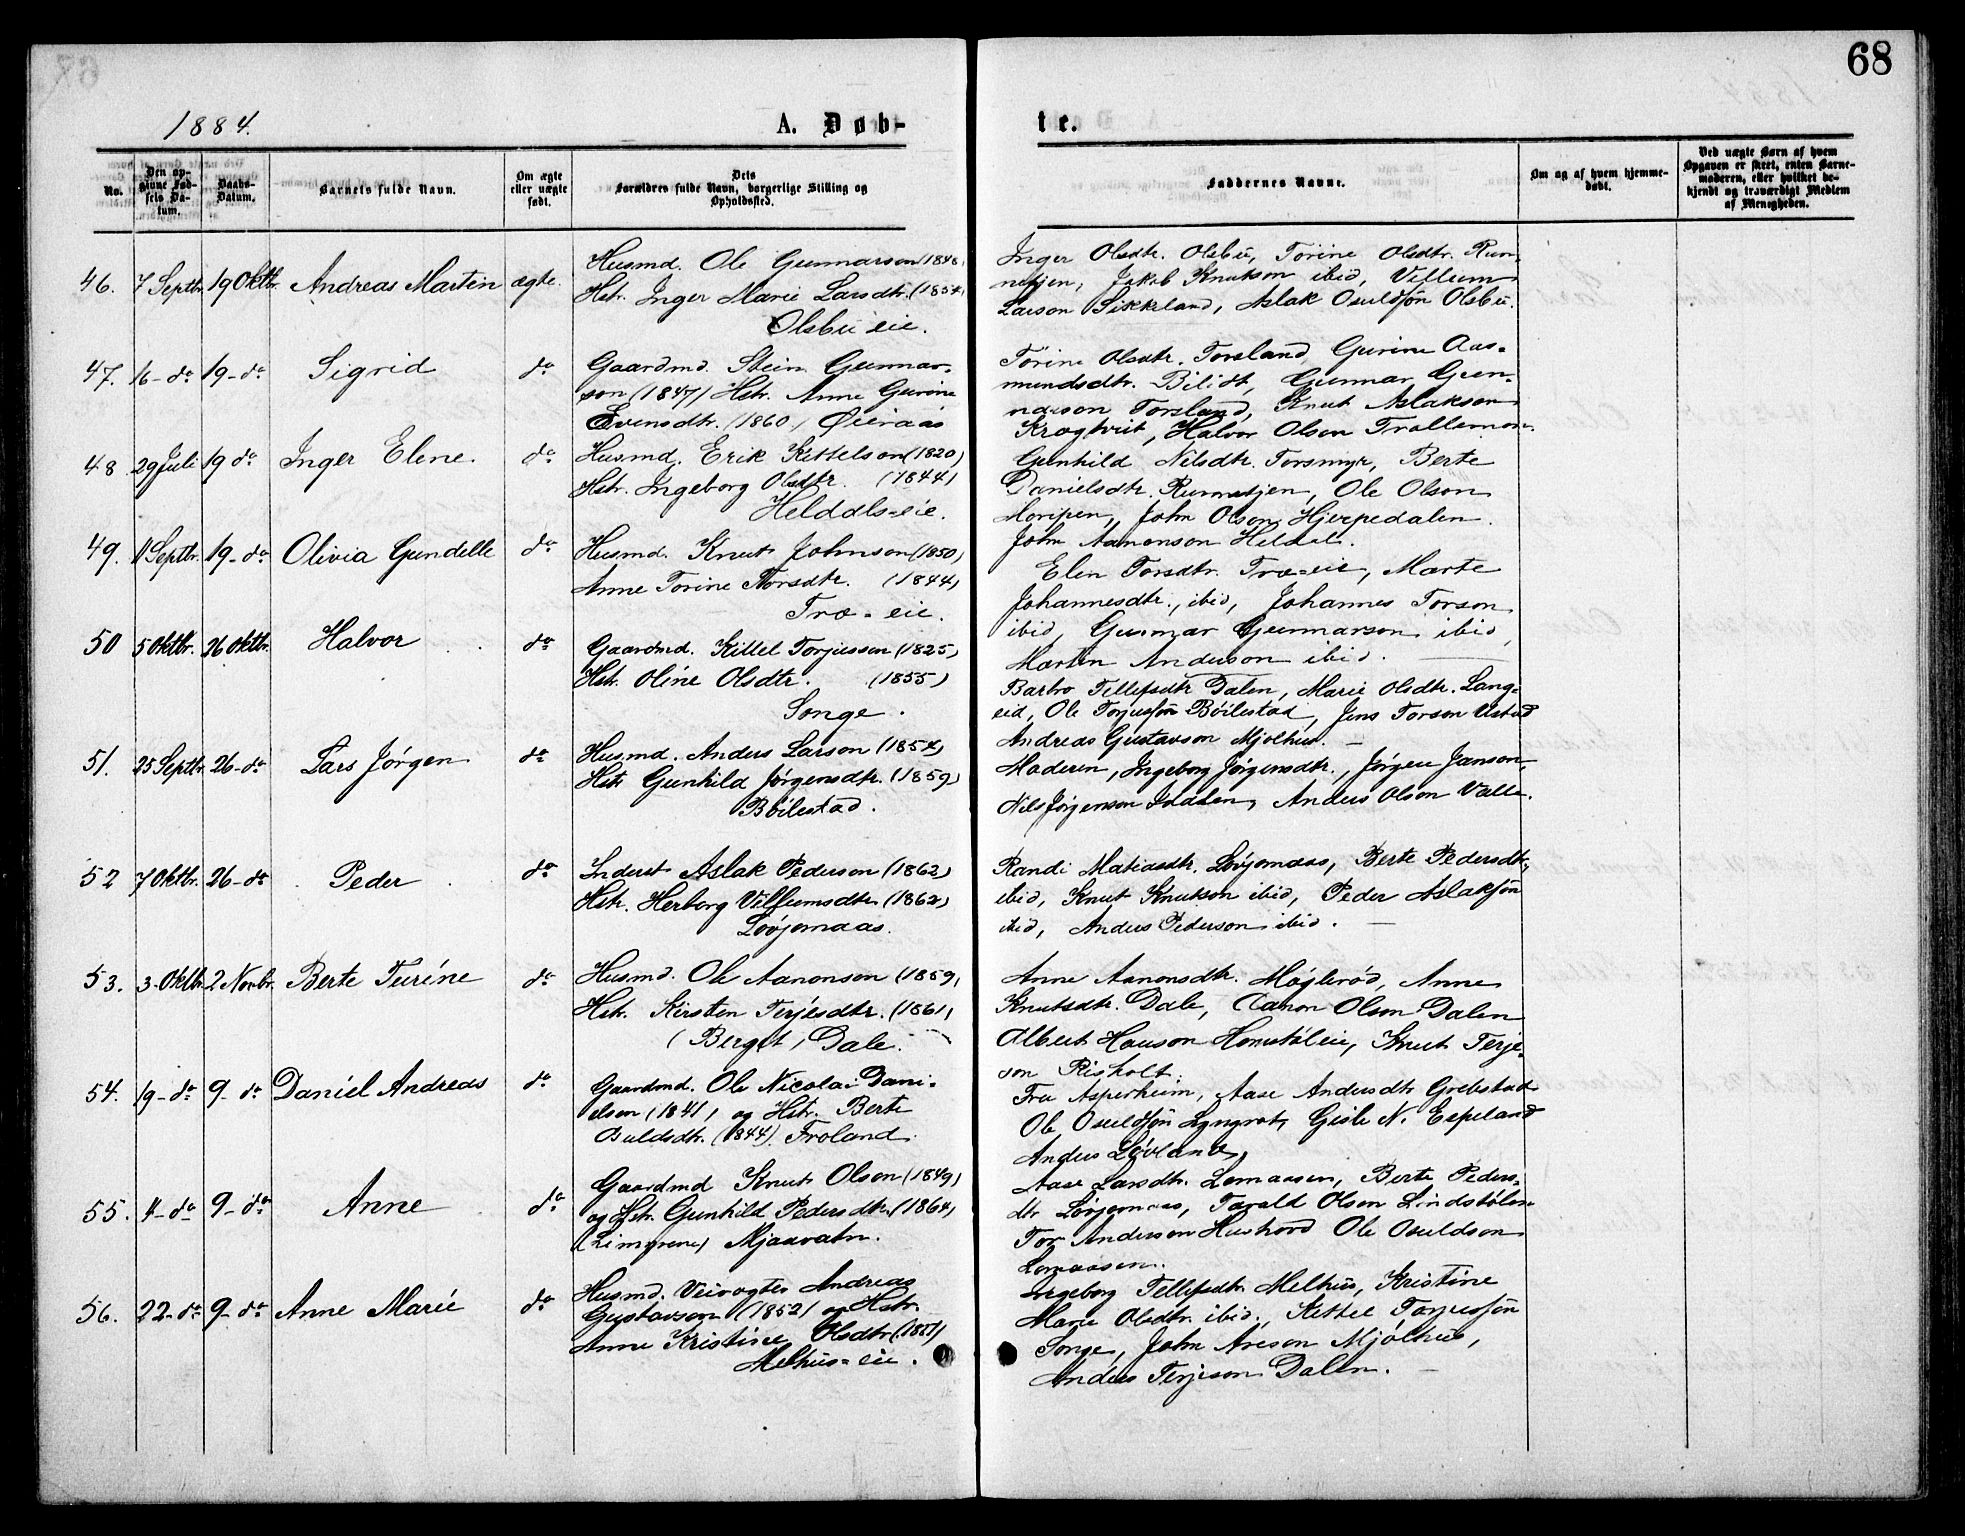 68
1884.
A. Døb-
te.
No.
Den op-
givne Fød-
sels Da-
tum.
Daabs-
Datum.
Barnets fulde Navn.
Om ægte
eller uægte
født.
Dets
Forældres fulde Navn, borgerlige Stilling og
Opholdssted.
Faddernes Navne.
Om og af hvem hjemme-
døbt.
Ved uægte Børn af hvem
Opgaven er skeet, enten Barne-
moderen, eller hvilket be-
kjendt og troværdigt Medlem
af Menigheden.
46. 7 Septbr. 19 Oktbr. Andreas Martin ægte.
Husmd. Ole Gunnarson (1848)
Hstr. Inger Marie Larsdtr. (1854)
Olsbu eie.
Inger Olsdtr. Olsbu, Torine Olsdtr. Run-
netjen, Jakob Knutson ibid, Villum
Larson Sikkeland, Aslak Osuldsøn Olsbu.
47. 16 - do 19 - do Sigrid do
Gaardmd. Stein Gunnar-
son (1847) Hstr. Anne Gurine
Evensdtr. (1860) Øieraas
Torine Olsdtr. Torsland, Gurine Aas-
mundsdtr. Bilidt, Gunnar Gun-
narson Torsland, Knut Aslakson
Krogtveit, Halvor Olson Trollemon.
48 29 Juli 19 do Inger Elene. do
Husmd. Erik Kittelson (1820)
Hstr. Ingeborg Olsdtr. (1844)
Helddls-eie.
Gunhild Nilsdtr. Torsmyr, Berte
Danielsdtr. Runnetjen, Ole Olson
Moripen, John Olson Hjerpedalen.
John Aanonson Heldal.
49. 11 Septbr. 19 - do Olivia Gundelle do
Husmd. Knut Johnson (1850)
Anne Torine Torsdtr. (1844)
Tra - eie.
Elen Torsdtr. Tra-eie, Marte
Johannesdtr., ibid, Johannes Torson
ibid, Gunnar Gunnarson ibid,
Martin Anderson ibid.
50 5 Oktbr. 26 Oktbr. Halvor do
Gaardmd. Kittel Torjusson (1825)
Hstr. Oline Olsdtr. (1855)
Songe.
Barbro Tellefsdtr Dalen, Marie Olsdtr. Lang-
eid, Ole Torjussøn Bøilestad, Jens Torson Ustad
Andreas Gustavson Mjølhus.
51. 25 Septbr. 26 - do Lars Jørgen do
Husmd. Anders Larson (1854)
Hstr Gunhild Jørgensdtr. (1859)
Bøilestad.
Moderen, Ingeborg Jørgensdtr., Jørgen Janson,
Nils Jørgenson, Anders Olson Valle.
52 7 Oktbr. 26 - do Peder do
Inderst Aslak Pederson (1862)
Hstr. Herborg Villumsdtr. (1862)
Løvjomaas.
Randi Matiasdtr. Løvjomaas, Berte Pedersdtr.,
ibid, Knut Knutson ibid, Peder Aslaksøn
ibid, Anders Pederson ibid.
53. 3 Oktbr. 2 Novbr. Berte Turine do
Husmd. Ole Aanonson (1859)
Hstr. Kirsten Terjesdtr. (1861)
(Berget) Dale.
Anne Aanonsdtr. Møglerød, Anne
Knutsdtr. Dale, Aanon Olson Dalen
Albert Hauson, Knut Terje-
son Risholt.
54. 19 - do 9 - do Daniel Andreas do
Gaardmd. Ole Nicolai Dani-
elson (1841) og Hstr. Berte
Osuldsdtr. (1844) Froland.
Fru Asperheim, Aase Andersdtr Grebstad
Ole Osuldsøn Lyngrot, Gisle N. Espeland
Anders Løvland,
55. 4 - do 9 - do Anne do
Gaardmd Knut Olson (1849)
og Hstr. Gunhild Pedersdtr. (1864)
(Limyrene) Mjaavatn.
Aase Larsdtr. Lomaasen, Berte Peders-
dtr Løvjomaas, Tarald Olson Lindstølen
Tor Anderson Huskord Ole Osuldson
Lomaasen.
56. 22 - do 9 - do Anne Marie do
Husmd. Veivogter Andreas
Gustavson (1852) og Hstr.
Anne Kristine Olsdtr
Melhus-eie.
Ingeborg Tellefsdtr. Melhus, Kristine
Marie Olsdtr. ibid., Kettel Torjussøn
Songe, John Areson Mjølhus,
Anders Terjeson Dalen.